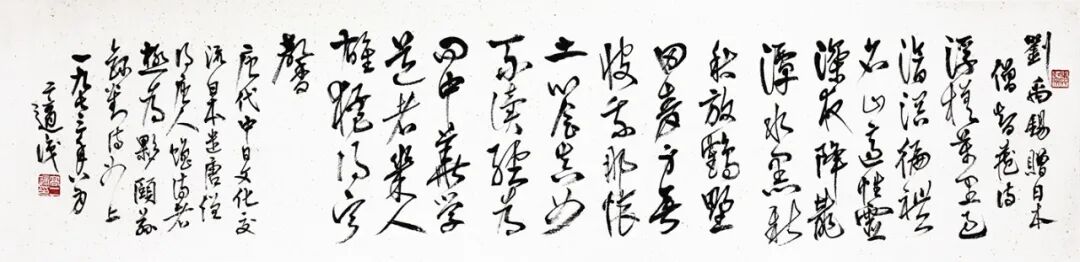 劉禹錫贈日本
僧智藏詩
浮杯萬里過
滄溟徧禮
名山適性靈
深夜降龍
潭水黑新
秋放鶴野
田青身無
彼我那懷
土心會真如
不讀經為
問中華学
道者幾人
雄猛得寧
馨
唐代中日文化交
流日本遣唐僧
得唐人贈詩者
極為夥頤茲
錄劉詩如上
一九七三年八月